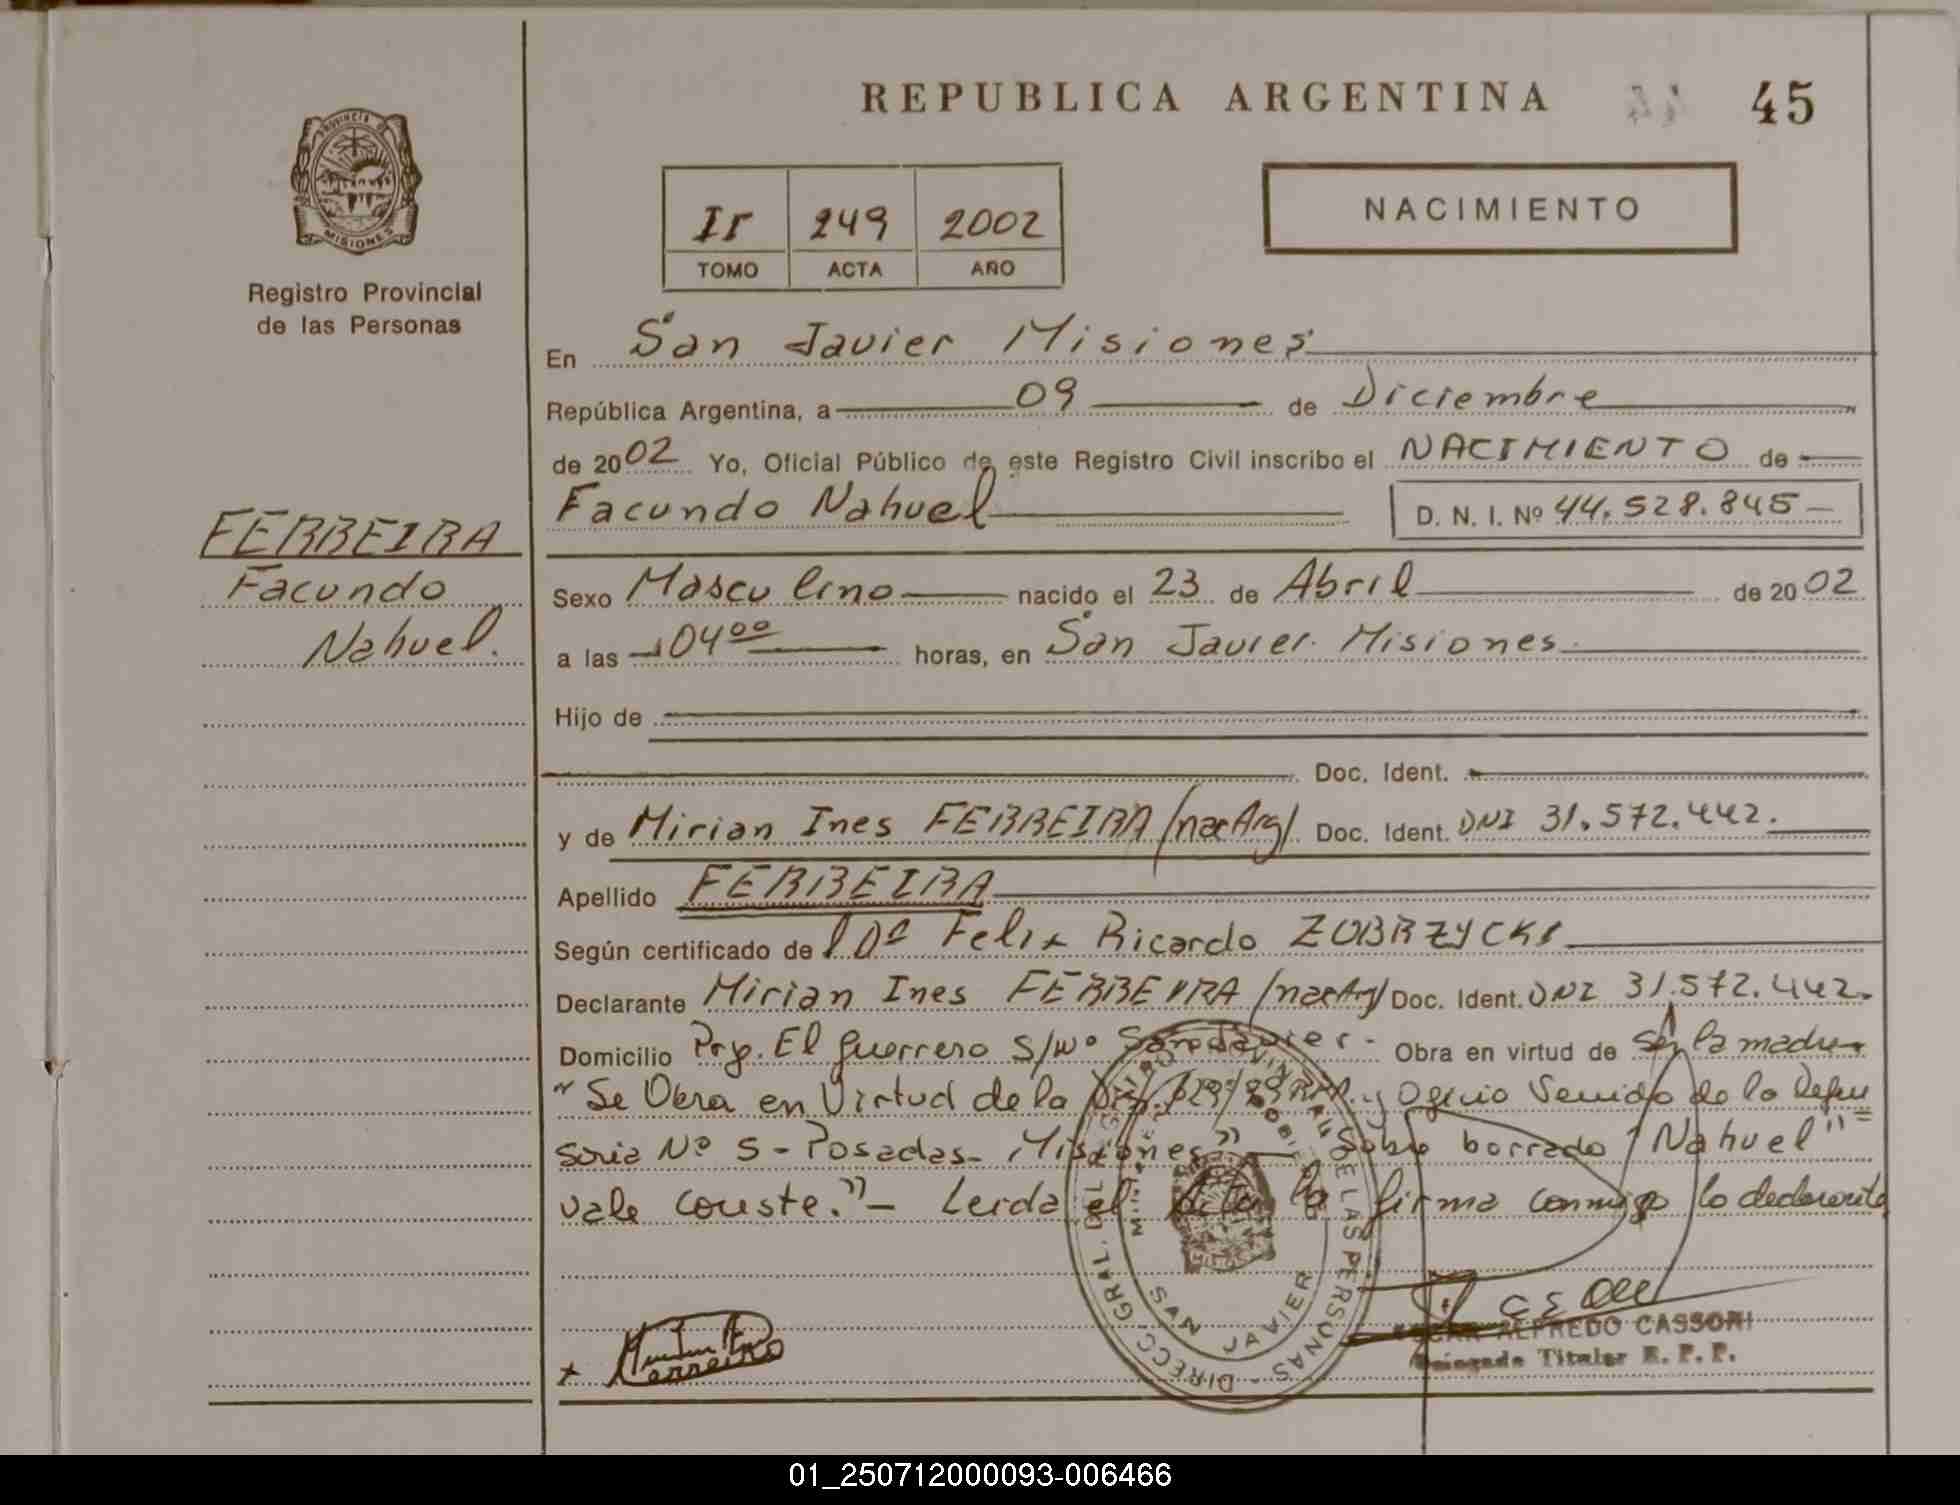 REPUBLICA ARGENTINA 45
PROVINCIA DE
MISIONES
Registro Provincial
de las Personas
II 249 2002
TOMO ACTA AÑO
NACIMIENTO
En San Javier Misiones
República Argentina, a 09 de Diciembre
de 2002 Yo, Oficial Público de este Registro Civil inscribo el NACIMIENTO de
Facundo Nahuel D. N. I. Nº 44.528.845
FERREIRA
Facundo
Nahuel.
Sexo Masculino nacido el 23 de Abril de 2002
a las 04 00 horas, en San Javier Misiones
Hijo de
Doc. Ident.
y de Mirian Ines FERREIRA (nac Arg) Doc. Ident. DNI 31.572.442.
Apellido FERREIRA
Según certificado de Felix Ricardo ZOBRZYCKI
Declarante Mirian Ines FERREIRA (nac Arg) Doc. Ident. DNI 31.572.442.
Domicilio El Guerrero S/Nº San Javier - Obra en virtud de la madre
"Se Obra en Virtud de la y Oficio Venido de la Defen
soria Nº 5 - Posadas - Misiones" - Sobre borrado "Nahuel"
vale conste." - Leida el Acta la firma conmigo la declarante
x Ferreira
DIRECC. GRAL. DEL REGISTRO PROVINCIAL DE LAS PERSONAS
SAN JAVIER
EDGAR ALFREDO CASSONI
Delegado Titular R. P. P.
01_250712000093-006466